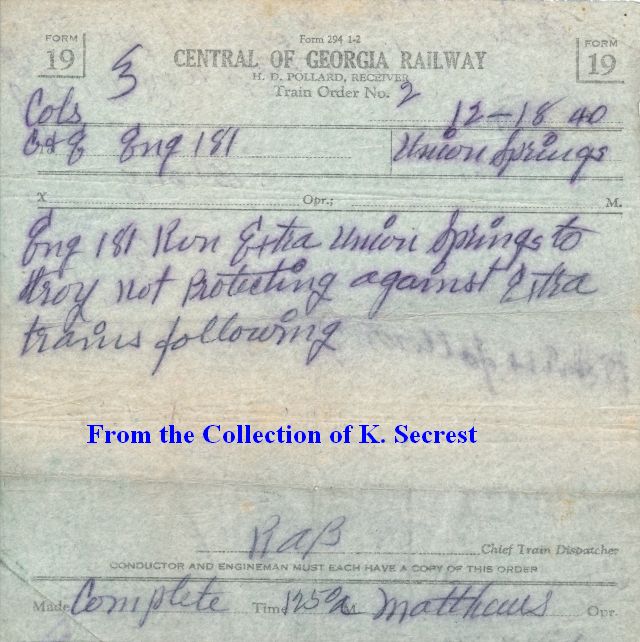 FORM 19
Form 294 1-2
FORM 19
CENTRAL OF GEORGIA RAILWAY
H. D. POLLARD, RECEIVER
3
Train Order No. 2
Cols 12-18 40
C&E Eng 181 Union Springs
X Opr.; M.
Eng 181 Run Extra Union Springs to
Troy not Protecting against Extra
trains following
From the Collection of K. Secrest
RAB Chief Train Dispatcher
CONDUCTOR AND ENGINEMAN MUST EACH HAVE A COPY OF THIS ORDER
Made Complete Time 1250 A M. Matthews Opr.